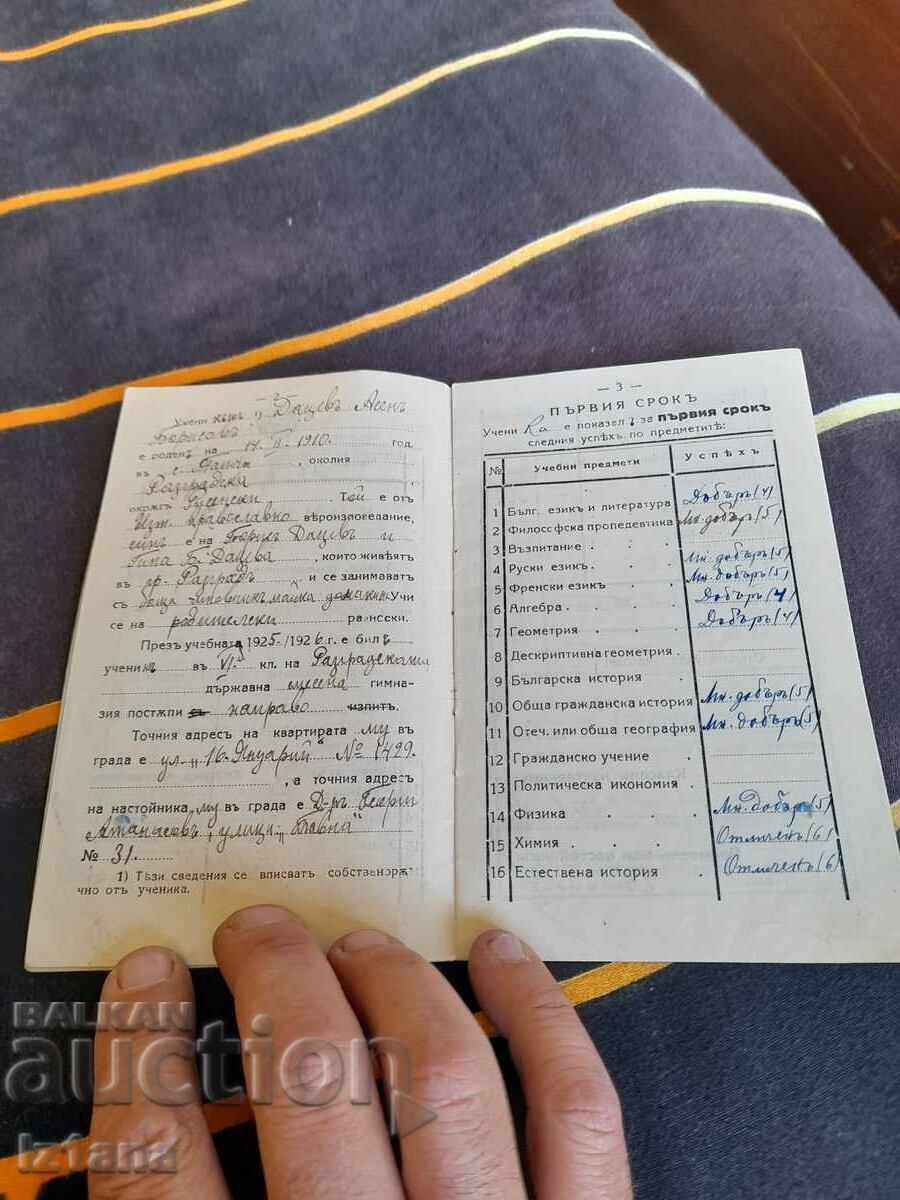 — 2 —
Учени кътъ ¹) Дацевъ Асенъ
Борисовъ
е роденъ на 14. II - 1910. год.
въ с. , околия
Разградска ,
окржгъ Русенски. Той е отъ
Изт. православно вѣроизповедание,
синъ е на Борисъ Дацевъ и
Б. Дацева , които живѣятъ
въ гр. Разградъ и се занимаватъ
съ баща чиновникъ майка домакиня Учи
се на родителски разноски.
Презъ учебната 1925/1926 г. е билъ
ученикъ въ VI кл. на Разградската
държавна смесена гимна-
зия постѫпи съ направо изпитъ.
Точния адресъ на квартирата му въ
града е ул. „16. Януарий" № 1499.
, а точния адресъ
на настойника му въ града е Д-ръ Георги
Атанасовъ, улица „Главна"
№ 31.
1) Тѣзи сведения се вписватъ собственорѫ-
чно отъ ученика.
— 3 —
ПЪРВИЯ СРОКЪ
Учени ка е показал ъ за първия срокъ
следния успѣхъ по предметитѣ:
№ Учебни предмети Успѣхъ
1 Бълг. езикъ и литература Добъръ (4)
2 Философска пропедевтика Мн. добъръ (5)
3 Възпитание
4 Руски езикъ Мн. добъръ (5)
5 Френски езикъ Мн. добъръ (5)
6 Алгебра Добъръ (4)
7 Геометрия Добъръ (4)
8 Дескриптивна геометрия
9 Българска история
10 Обща гражданска история Мн. добъръ (5)
11 Отеч. или обща география Мн. добъръ (5)
12 Гражданско учение
13 Политическа икономия
14 Физика Мн. добъръ (5)
15 Химия Отличенъ (6)
16 Естествена история Отличенъ (6)
BALKAN
auction
iz1tana